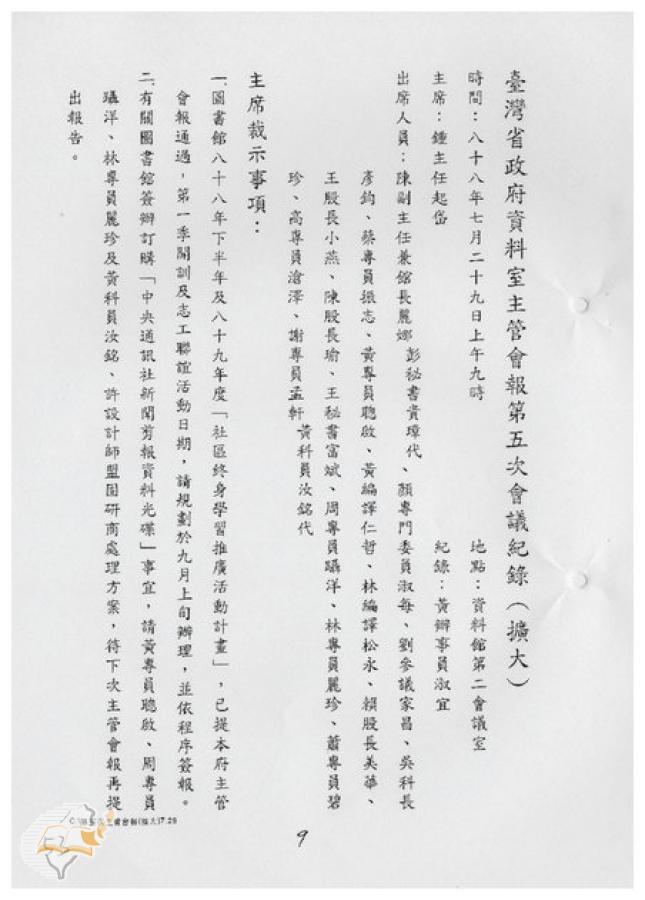 臺灣省政府資料室主管會報第五次會議紀錄（擴大）
時間：八十八年七月二十九日上午九時 地點：資料館第二會議室
主席：鍾主任起岱 紀錄：黃辦事員淑宜
出席人員：陳副主任兼館長麗娜 彭秘書貴璋代、顏專門委員淑每、劉參議家昌、吳科長
彥鈞、蔡專員振志、黃專員聰啟、黃編譯仁哲、林編譯松永、賴股長美華、
王股長小燕、陳股長瑜、王秘書富斌、周專員躡洋、林專員麗珍、蕭專員碧
珍、高專員滄澤、謝專員孟軒 黃科員汝銘代
主席裁示事項：
一、圖書館八十八年下半年及八十九年度「社區終身學習推廣活動計畫」，已提本府主管
會報通過，第一季開訓及志工聯誼活動日期，請規劃於九月上旬辦理，並依程序簽報。
二、有關圖書館簽辦訂購「中央通訊社新聞剪報資料光碟」事宜，請黃專員聰啟、周專員
躡洋、林專員麗珍及黃科員汝銘、許設計師盟固研商處理方案，待下次主管會報再提
出報告。
(擴大)7.29
9